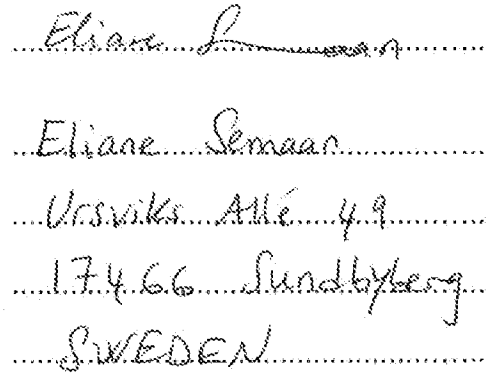 Eliane S
Eliane Semaan
Ursviks Allé 49
17466 Sundbyberg
SWEDEN